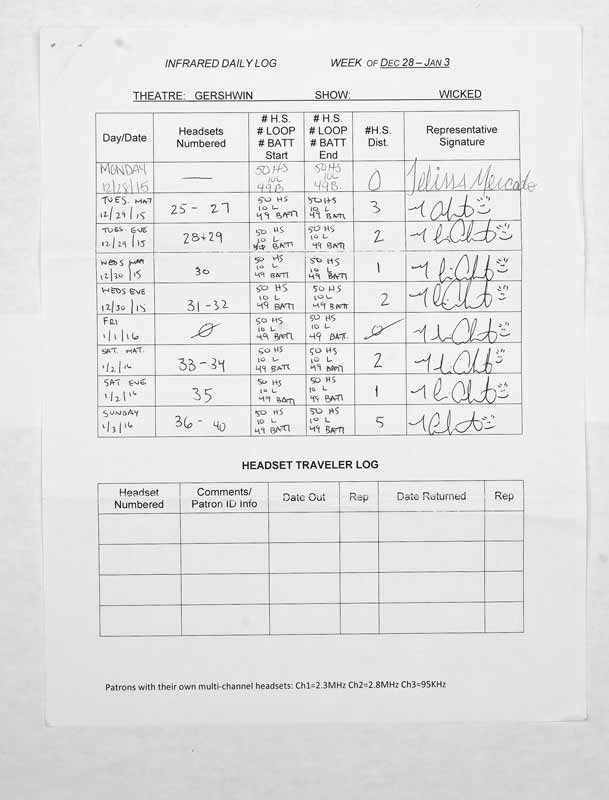 INFRARED DAILY LOG WEEK OF DEC 28 – JAN 3
THEATRE: GERSHWIN SHOW: WICKED
Day/Date Headsets Numbered # H.S. # LOOP # BATT Start # H.S. # LOOP # BATT End #H.S. Dist. Representative Signature
MONDAY 12/28/15 — 50 HS 10L 49 B 50 HS 10L 49B. 0 Melissa Mercado
TUES. MAT 12/29/15 25 - 27 50 HS 10 L 49 BATT 50 HS 10 L 49 BATT 3
TUES. EVE 12/29/15 28+29 50 HS 10 L 49 BATT 50 HS 10 L 49 BATT 2
WEDS MAT 12/30/15 30 50 HS 10 L 49 BATT 50 HS 10 L 49 BATT 1
WEDS EVE 12/30/15 31-32 50 HS 10 L 49 BATT 50 HS 10L 49 BATT 2
FRI 1/1/16 Ø 50 HS 10 L 49 BATT 50 HS 10 L 49 BATT. Ø
SAT. MAT. 1/2/16 33-34 50 HS 10 L 49 BATT 50 HS 10 L 49 BATT 2
SAT EVE 1/2/16 35 50 HS 10 L 49 BATT 50 HS 10 L 49 BATT 1
SUNDAY 1/3/16 36 - 40 50 HS 10 L 49 BATT 50 HS 10 L 49 BATT 5
HEADSET TRAVELER LOG
Headset Numbered Comments/ Patron ID Info Date Out Rep Date Returned Rep
Patrons with their own multi-channel headsets: Ch1=2.3MHz Ch2=2.8MHz Ch3=95KHz